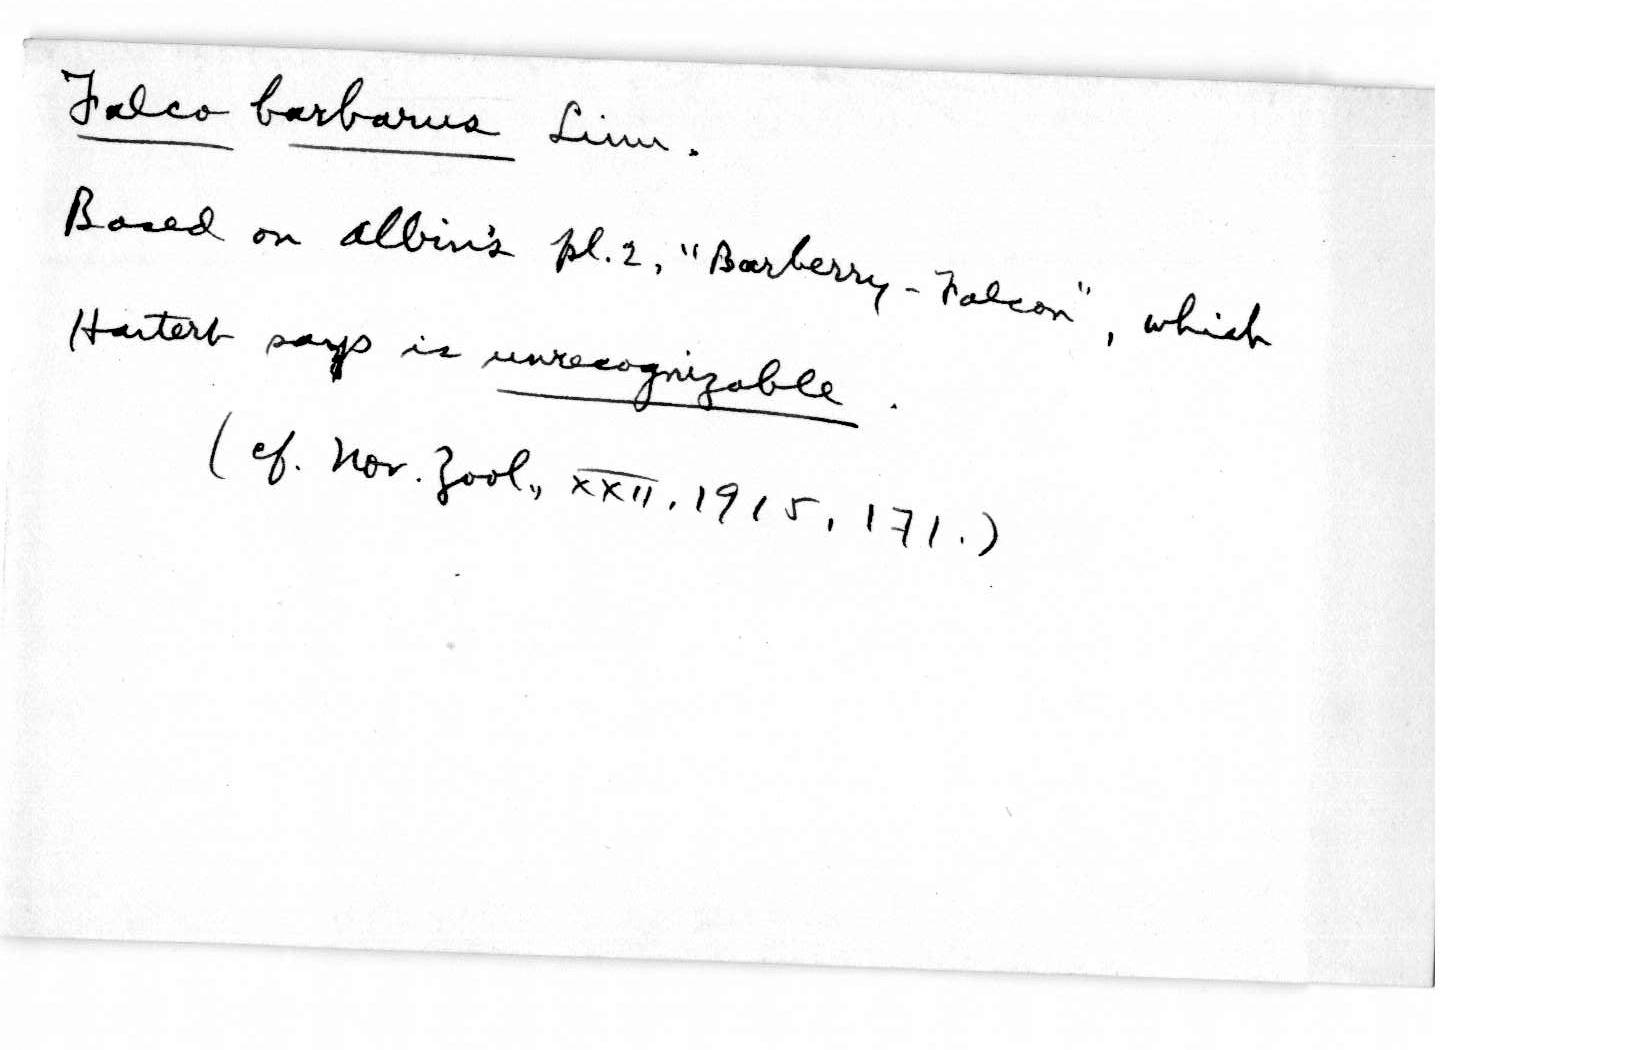 Falco barbarus Linn.
Based on Albin's pl. 2, "Barberry-Falcon", which
Hartert says is unrecognizable.
(cf. Nov. Zool., XXII, 1915, 171.)